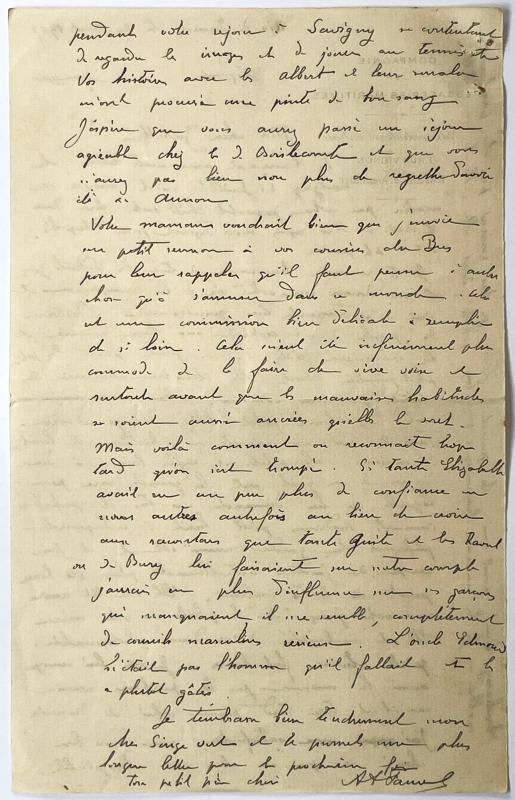 pendant votre séjour à Savigny se contentant
de regarder les images et de jouer au tennis
Vos histoires avec les Albert et leur smala
m'ont procuré une pinte de bon sang
J'espère que vous aurez passé un séjour
agréable chez les de Boislecomte et que vous
n'aurez pas lieu non plus de regretter d'avoir
été à
Votre maman voudrait bien que j'envoie
un petit sermon à vos cousins du Bus
pour leur rappeler qu'il faut penser à autre
chose qu'à s'amuser dans ce monde. Cela
est une commission bien délicate à remplir
de si loin. Cela serait été infiniment plus
commode de le faire de vive voix et
surtout avant que les mauvaises habitudes
se soient aussi ancrées qu'elles le sont.
Mais voilà comment on reconnait trop
tard qu'on s'est trompé. Si tante Elizabeth
avait eu un peu plus de confiance en
nous autres autrefois au lieu de croire
aux racontars que tante Guite et les Raoul
ou de Burey lui faisaient sur notre compte
j'aurais eu plus d'influence sur ses garçons
qui manquaient il me semble, complètement
de conseils masculins sérieux. L'oncle Edmond
n'était pas l'homme qu'il fallait et les
a plutôt gâtés.
Je t'embrasse bien tendrement mon
cher Singe vert et te promets une plus
longue lettre pour la prochaine fois
Ton petit père chéri